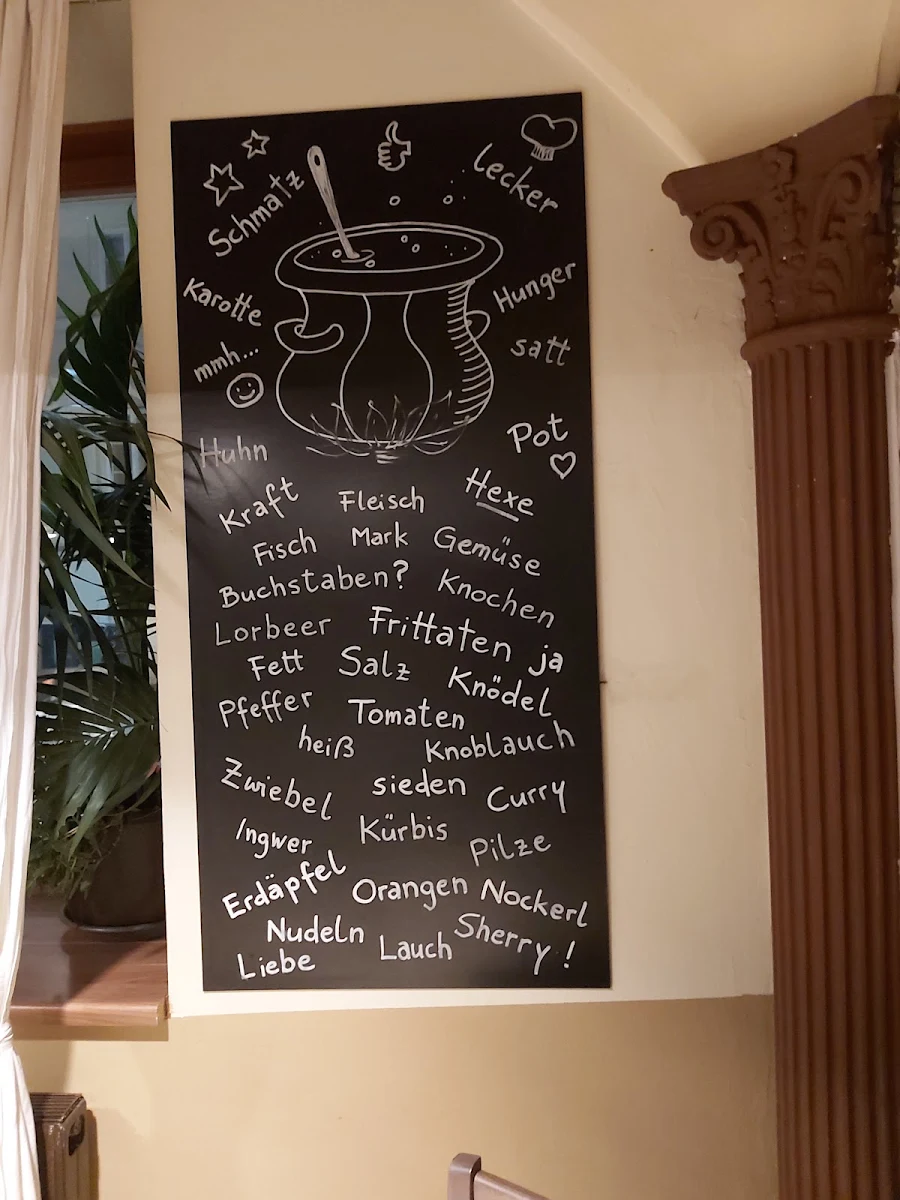 Schmatz lecker
Karotte Hunger
mmh... satt
Huhn Pot
Kraft Fleisch Hexe
Fisch Mark Gemüse
Buchstaben? Knochen
Lorbeer Frittaten ja
Fett Salz Knödel
Pfeffer Tomaten
heiß Knoblauch
Zwiebel sieden Curry
Ingwer Kürbis Pilze
Erdäpfel Orangen Nockerl
Nudeln Lauch Sherry!
Liebe